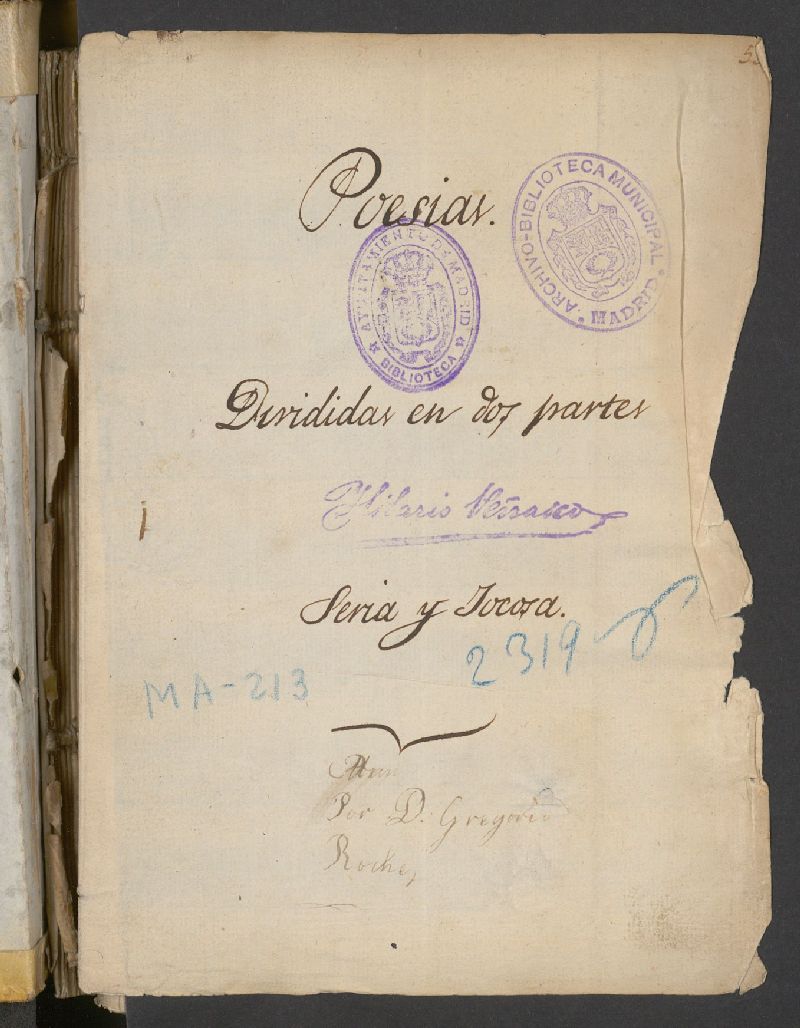 Poesias.
ARCHIVO-BIBLIOTECA MUNICIPAL
* MADRID *
AYUNTAMIENTO DE MADRID
BIBLIOTECA
Divididas en dos partes
Hilario
Seria y Jocosa.
2319
MA-213
Por D. Gregorio
Roche,